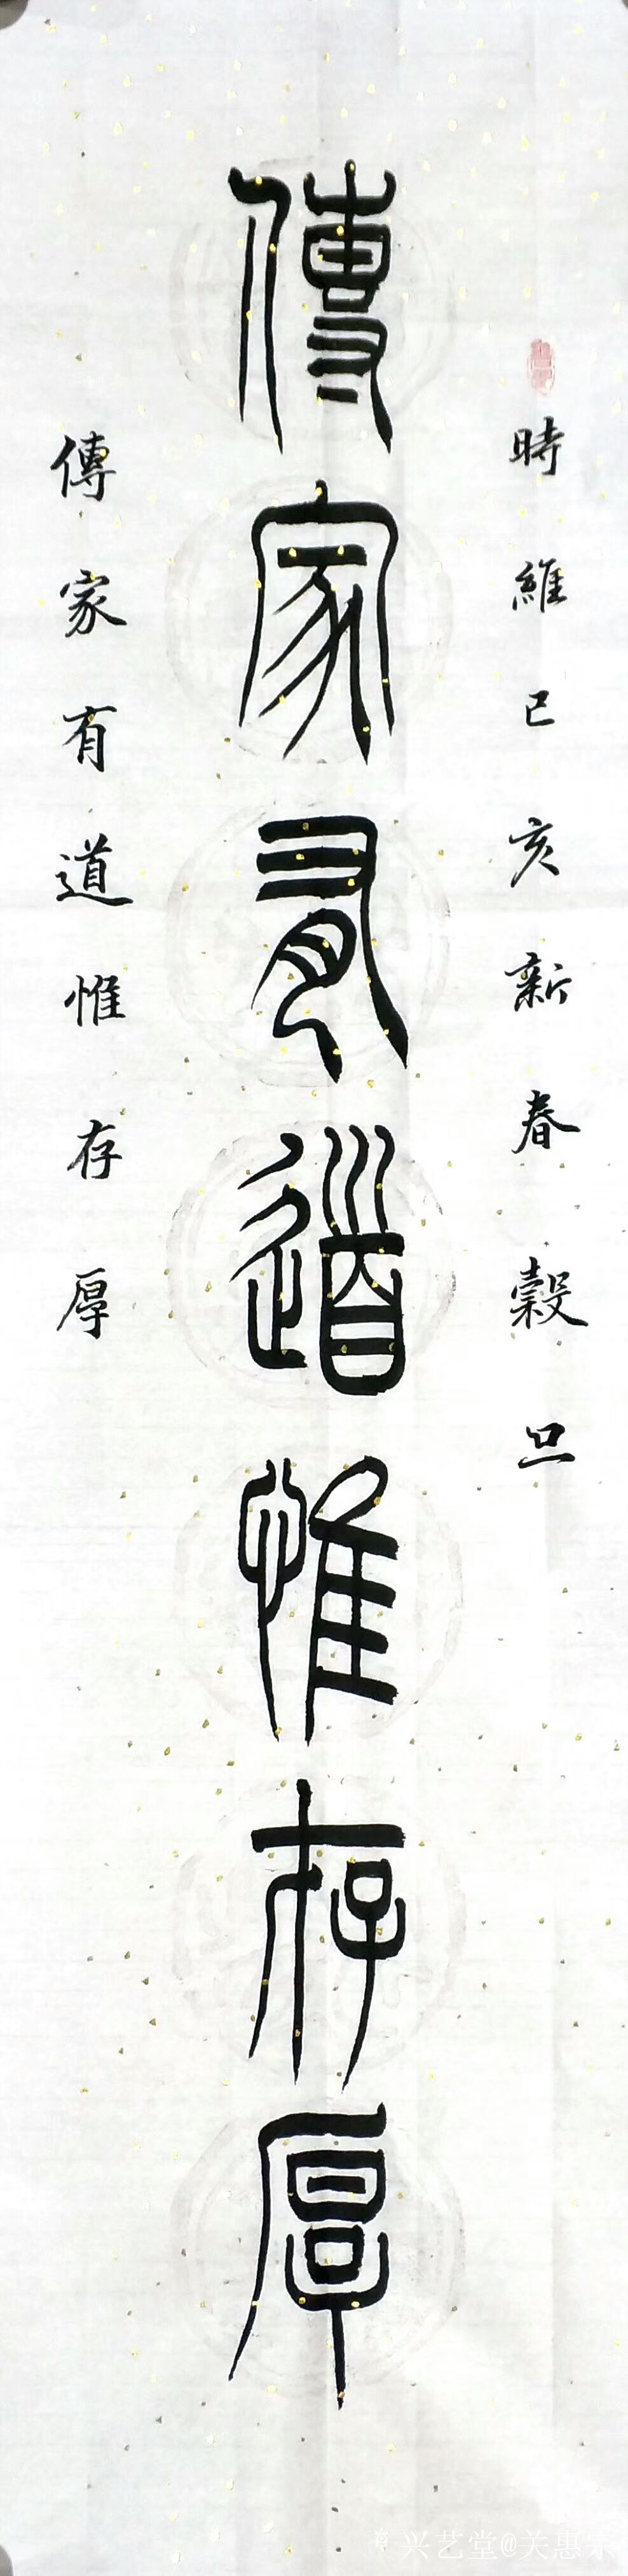 時維已亥新春穀旦
傳家有道惟存厚
傳家有道惟存厚
兴艺堂@关惠宗